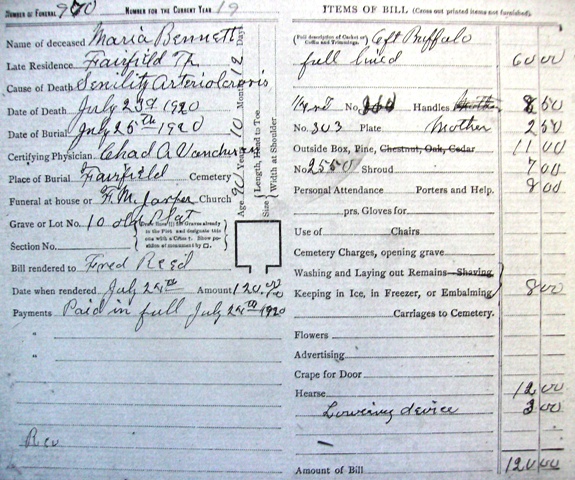 NUMBER OF FUNERAL 970 NUMBER FOR THE CURRENT YEAR 19
Name of deceased Maria Bennett
Late Residence. Fairfield Tp
Cause of Death Senility
Date of Death July 23rd 1920
Date of Burial July 25th 1920
Certifying Physician. Chad A
Place of Burial Fairfield Cemetery
Funeral at house or F. M. Jasper Church
Grave or Lot No. 10 old Plat
Section No.
Bill rendered to Fred Reed
Date when rendered July 25th Amount 120.00
Payments Paid in full July 25th 1920
"
"
Rev
Age 90 Years 10 Months 12 Days
Size { Length, Head to Toe
Width at Shoulder
ITEMS OF BILL (Cross out printed items not furnished).
(Full description of Casket or Coffin and Trimmings. 6ft Buffalo
full lined 60 00
No. Handles 8 50
No. 303 Plate Mother 2 50
Outside Box, Pine, Chestnut, Oak, Cedar 11 00
No 2550 Shroud 7 00
Personal Attendance Porters and Help. 8 00
prs. Gloves for
Use of Chairs
Cemetery Charges, opening grave
Washing and Laying out Remains—Shaving
Keeping in Ice, in Freezer, or Embalming 8 00
Carriages to Cemetery.
Flowers
Advertising
Crape for Door
Hearse 12 00
Lowering device 3 00
Amount of Bill 120 00